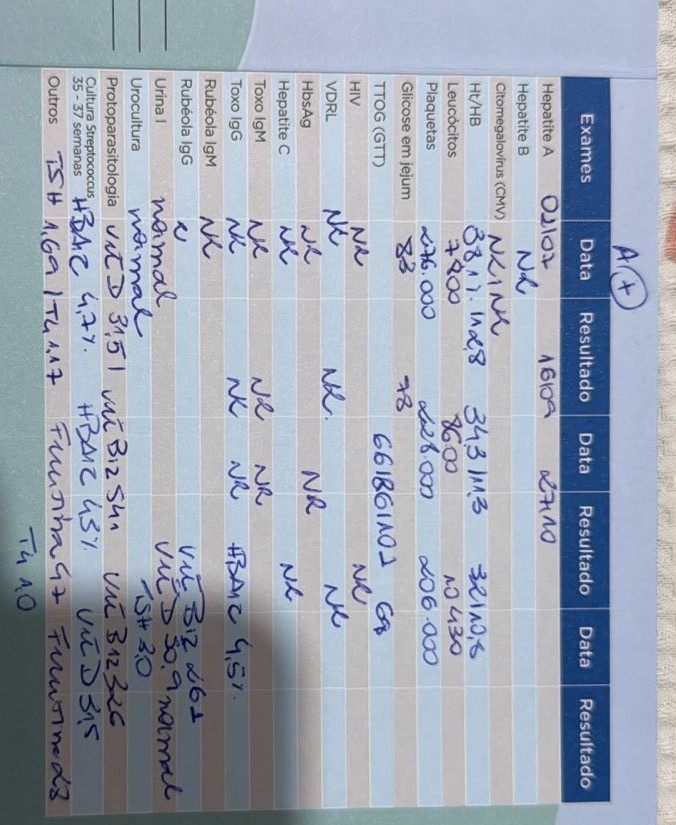 A(+)
Exames Data Resultado Data Resultado Data Resultado
Hepatite A 02/07 16/09 27/10
Hepatite B NR
Citomegalovírus (CMV) NR / NR
Ht/HB 38,1%. 12,8 34,3 / 11,3 32 / 10,8
Leucócitos 7800 8600 10430
Plaquetas 276.000 228.000 206.000
Glicose em jejum 83 78
TTOG (GTT) 66/86/102 68
HIV NR NR
VDRL NR NR. NR
HbsAg NR NR
Hepatite C NR NR
Toxo IgM NR NR NR
Toxo IgG NR NR NR HBA1C 4,5%.
Rubéola IgM NR
Rubéola IgG Vit B12 262
Urina I normal Vit D 30,9 normal
Urocultura normal TSH 3,0
Protoparasitologia Vit D 31,5 / Vit B12 541 Vit B12 326
Cultura Streptococcus
35 - 37 semanas HBA1C 4,7%. HBA1C 4,5% Vit D 31,5
Outros TSH 1,69 / T4 1,17 Ferritina 47 Ferritina 23
T4 1.0